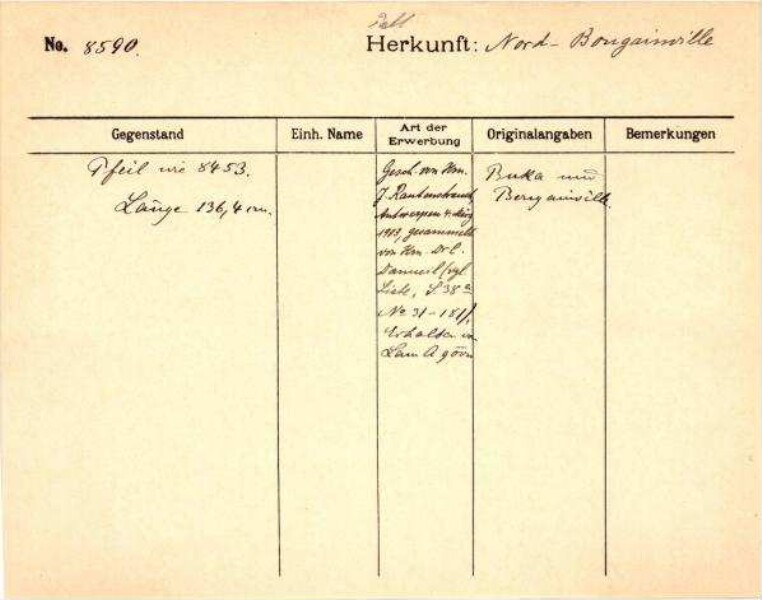 No. 8590.
Herkunft: Nord-Bougainville
Gegenstand
Einh. Name
Art der Erwerbung
Originalangaben
Bemerkungen
Pfeil wie 8453.
Länge 136,4 cm.
Gesch. von Hrn.
J. Rautenstrauch,
Antwerpen 4. März
1913, gesammelt
von Hrn. Dr. C.
(vgl.
Liste, S. 38a
No 31-181),
Erhalten
Buka und
Bougainville.